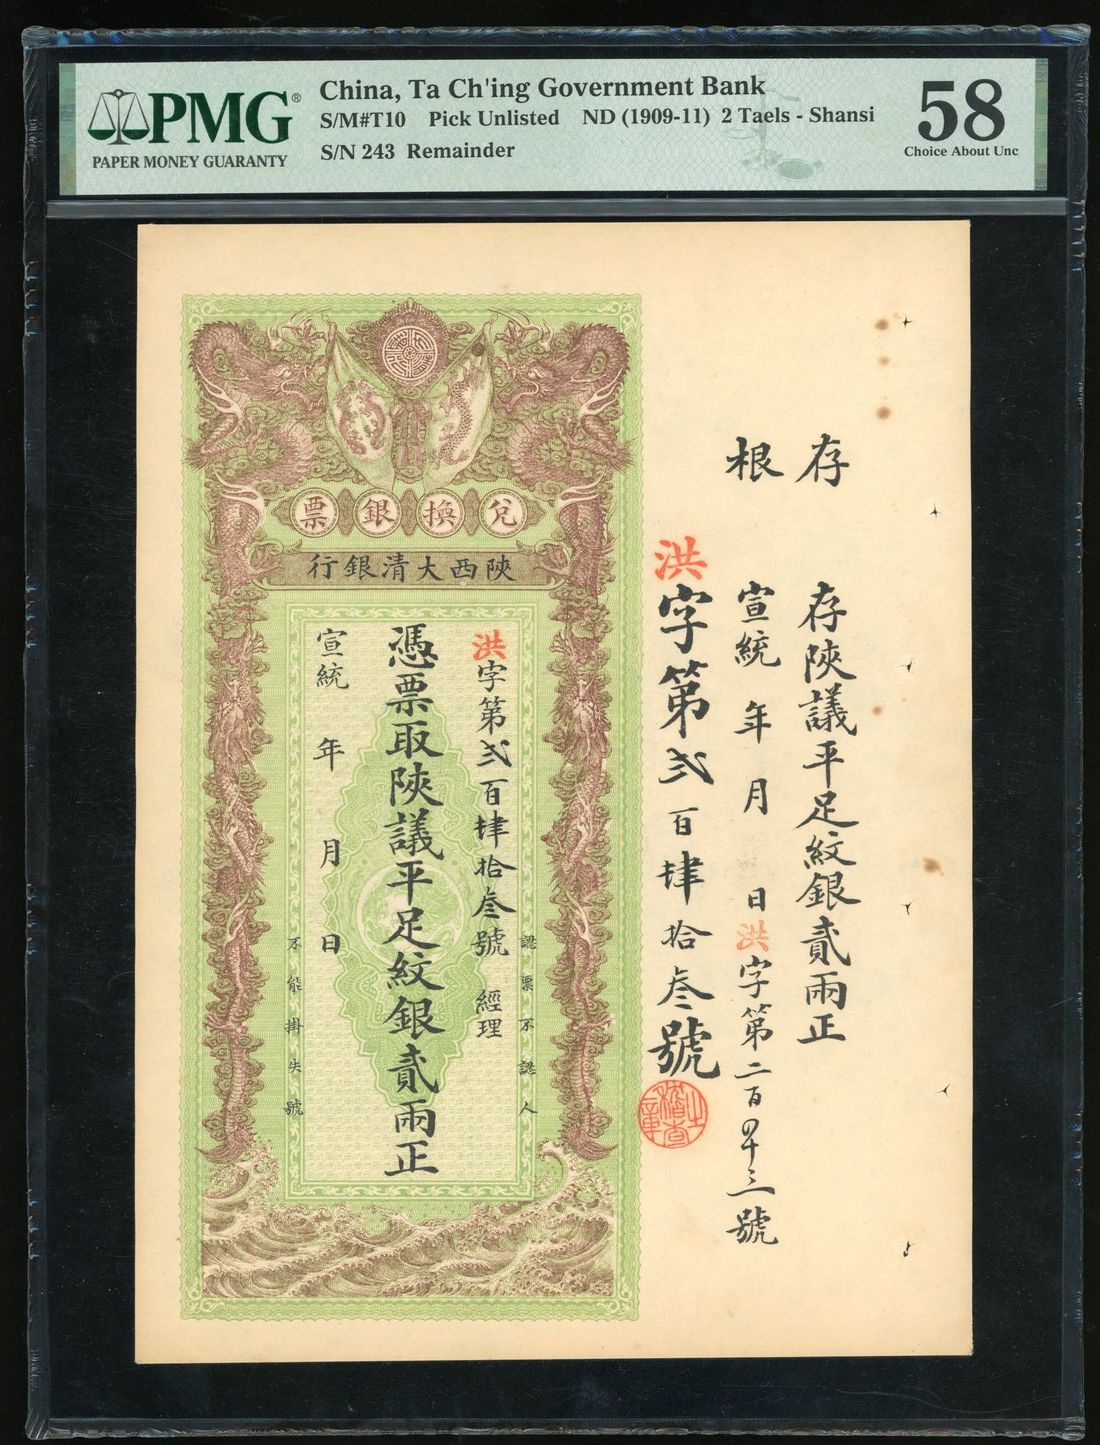 PMG
PAPER MONEY GUARANTY
China, Ta Ch'ing Government Bank
S/M#T10 Pick Unlisted ND (1909-11) 2 Taels - Shansi
S/N 243 Remainder
58
Choice About Unc
存根
存陝議平足紋銀貳兩正
宣統 年 月 日 洪字第二百四十三號
洪字第弍百肆拾叁號
兌換銀票
陝西大清銀行
認票不認人
洪字第弍百肆拾叁號 經理
憑票取陝議平足紋銀貳兩正
宣統 年 月 日
不能掛失號